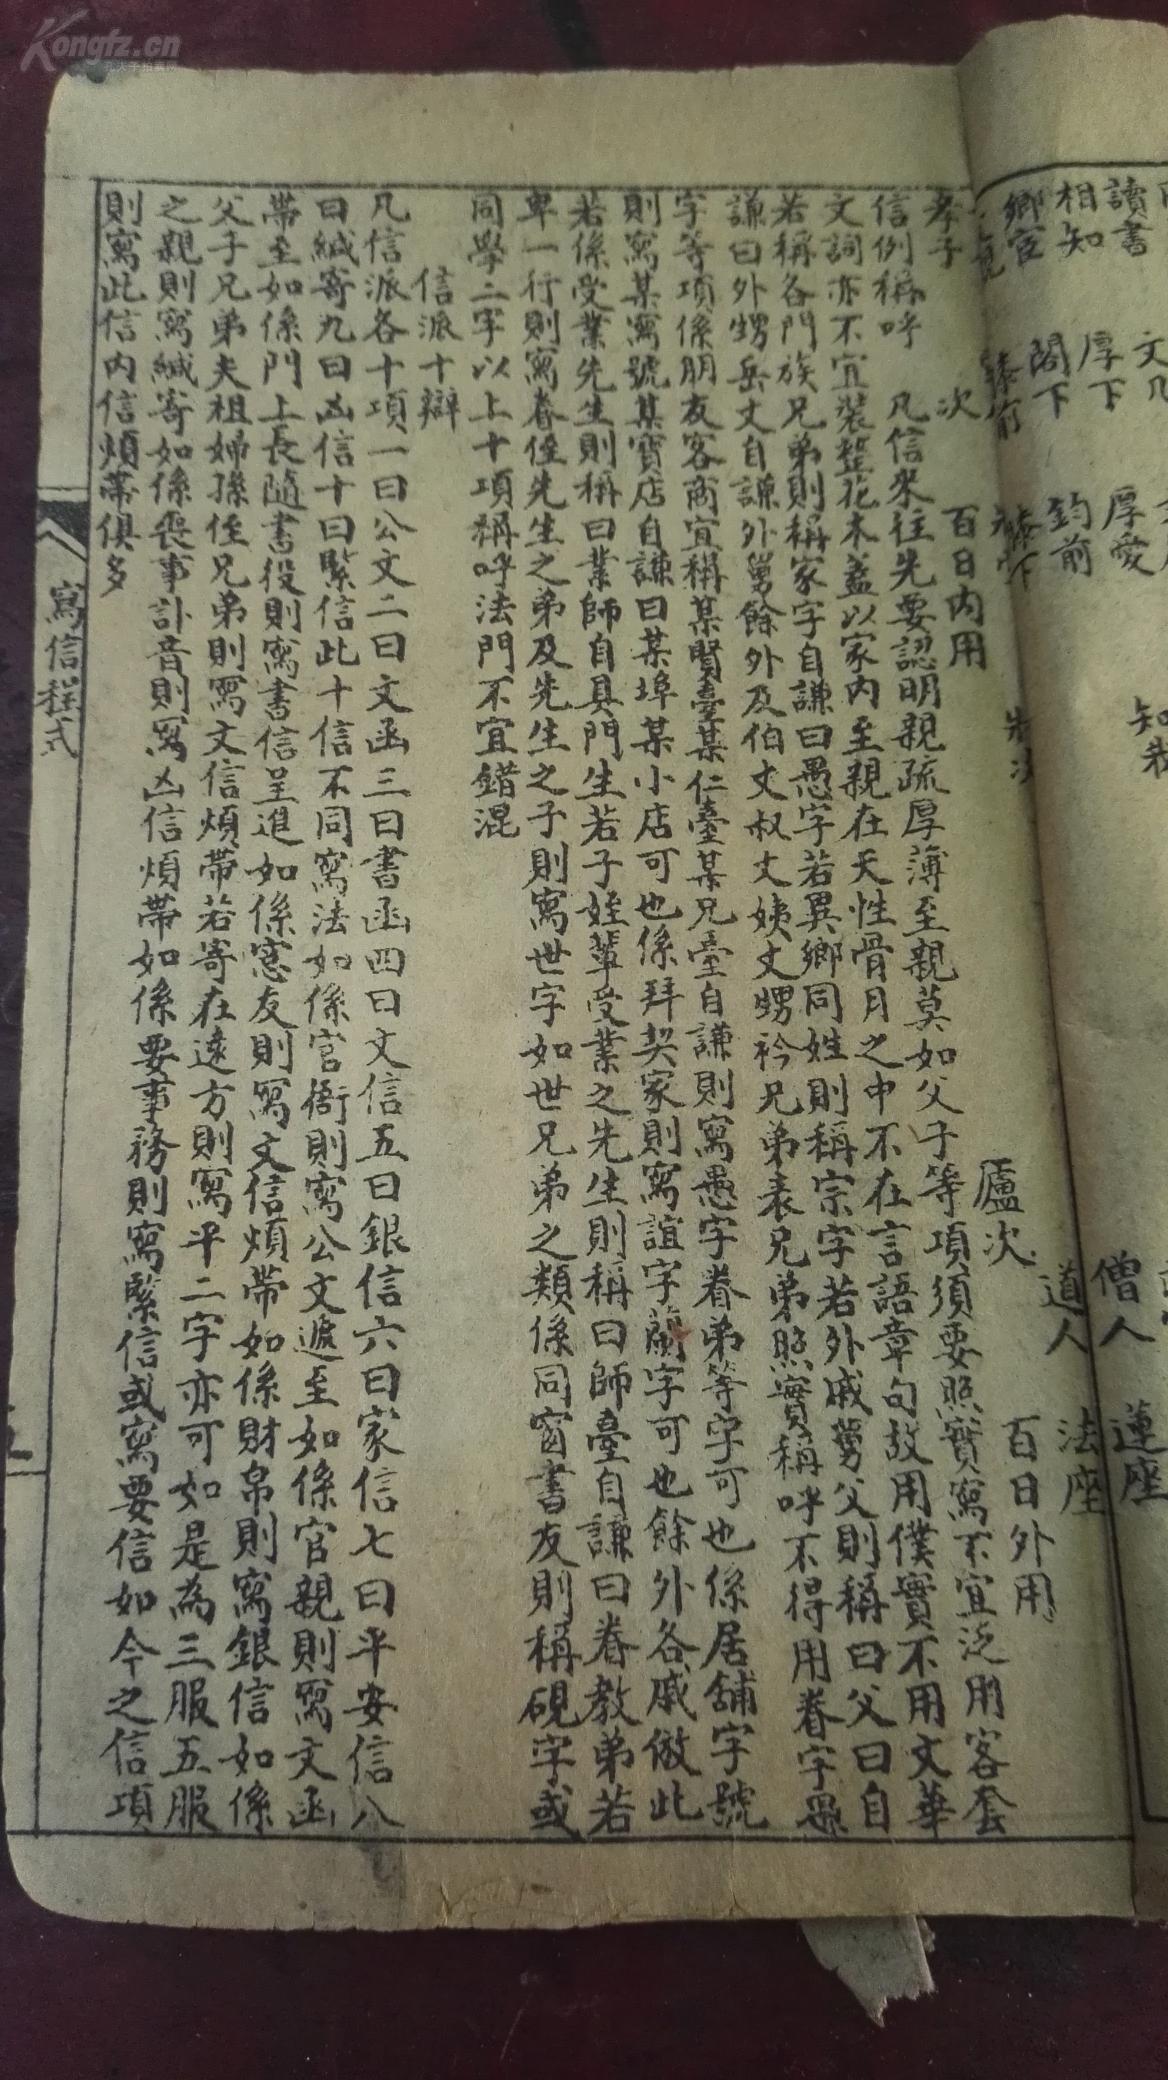 讀書
文几
相知
厚下
厚愛
知我
僧人
蓮座
鄉宦
閣下
鈞前
道人
法座
膝下
孝子
次
百日內用
廬次
百日外用
信例稱呼
凡信來往先要認明親疏厚薄至親莫如父子等項須要照實寫不宜泛用客套
文詞亦不宜裝整花木蓋以家內至親在天性骨月之中不在言語章句故用僕實不用文華
若稱各門族兄弟則稱家字自謙曰愚字若異鄉同姓則稱宗字若外戚舅父則稱曰父曰自
謙曰外甥岳丈自謙外舅餘外及伯丈叔丈姨丈甥衿兄弟表兄弟照實稱呼不得用眷字愚
字等項係朋友客商宜稱某賢臺某仁臺某兄臺自謙則寫愚字眷弟等字可也係居舖字號
則寫某寫號某寶店自謙曰某埠某小店可也係拜契家則寫誼字蘭字可也餘外各戚倣此
若係受業先生則稱曰業師自具門生若子姪輩受業之先生則稱曰師臺自謙曰眷教弟若
卑一行則寫眷侄先生之弟及先生之子則寫世字如世兄弟之類係同窗書友則稱硯字或
同學二字以上十項稱呼法門不宜錯混
信派十辯
凡信派各十項一曰公文二曰文函三曰書函四曰文信五曰銀信六曰家信七曰平安信八
曰緘寄九曰凶信十曰緊信此十信不同寫法如係官衙則寫公文遞至如係官親則寫文函
帶至如係門上長隨書役則寫書信呈進如係窓友則寫文信煩帶如係財帛則寫銀信如係
父子兄弟夫祖婦孫侄兄弟則寫文信煩帶若寄在遠方則寫平二字亦可如是為三服五服
之親則寫緘寄如係喪事訃音則寫凶信煩帶如係要事務則寫緊信或寫要信如今之信項
則寫此信內信煩帶俱多
寫信程式
Kongfz.cn
孔夫子拍賣網